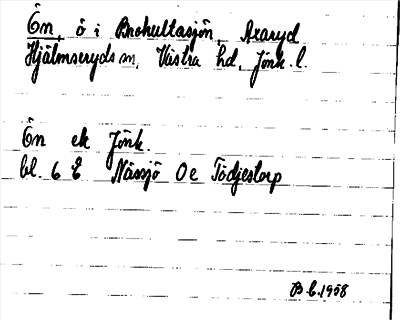 Ön, ö i Brohultasjön, Axaryd
Hjälmseryds sn, Västra hd, Jönk. l.
Ön ek Jönk.
bl. 6 E Nässjö Oe Tödjestorp
B.C. 1958